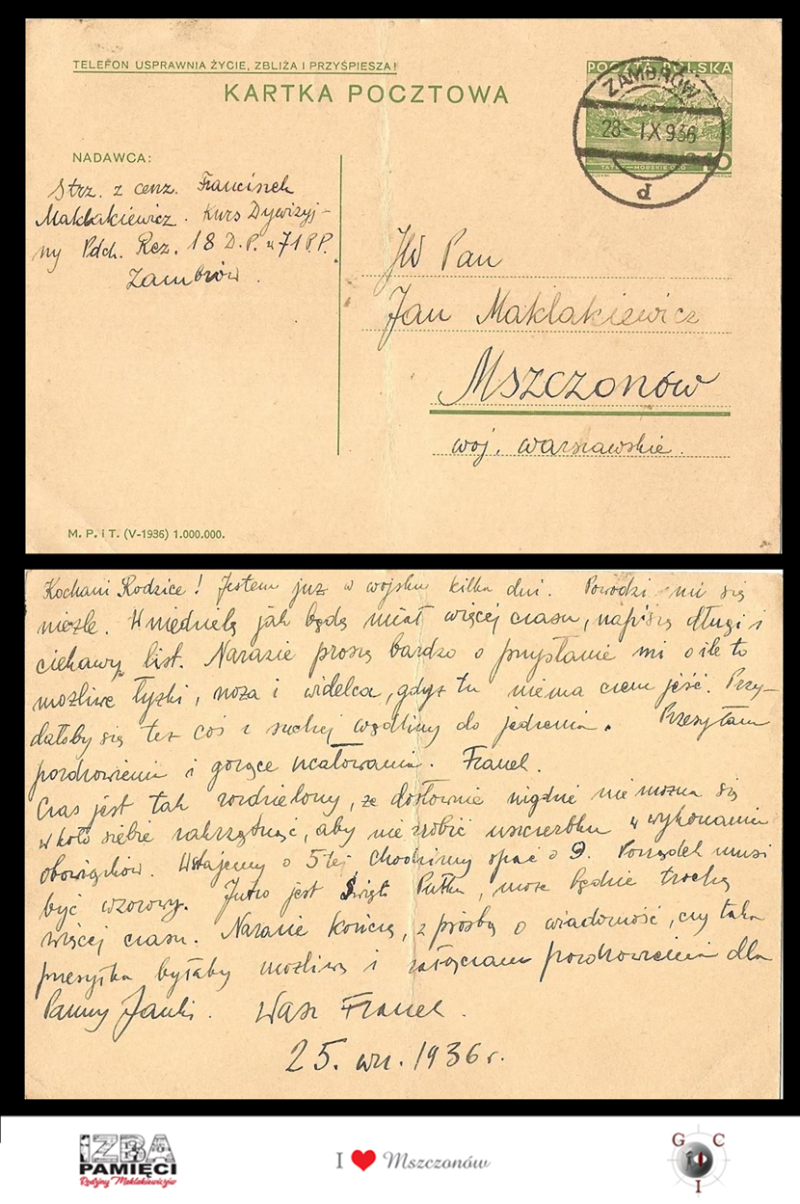 TELEFON USPRAWNIA ŻYCIE, ZBLIŻA I PRZYŚPIESZA!
KARTKA POCZTOWA
POCZTA POLSKA
ZAMBRÓW
28- IX 936
P
10
NADAWCA:
Strz. z cenz. Franciszek
Maklakiewicz. Kurs Dywizyj-
ny Pdch. Rez. 18 D.P. 71 P.P.
Zambrów.
JW Pan
Jan Maklakiewicz
Mszczonów
woj. warszawskie.
M. P. i T. (V-1936) 1.000.000.
Kochani Rodzice! Jestem już w wojsku kilka dni. Powodzi mi się
nieźle. W niedzielę jak będę miał więcej czasu, napiszę długi i
ciekawy list. Narazie proszę bardzo o przysłanie mi o ile to
możliwe łyżki, noża i widelca, gdyż tu niema czem jeść. Przy-
dałoby się też coś z suchej wędliny do jedzenia. Przesyłam
pozdrowienia i gorące ucałowania. Franek.
Czas jest tak rozdzielony, że dosłownie nigdzie nie można się
wkoło siebie zakrzątnąć, aby nie zrobić uszczerbku w wykonaniu
obowiązków. Wstajemy o 5-tej chodzimy spać o 9. Porządek musi
być wzorowy. Jutro jest Święto Pułku, może będzie trochę
więcej czasu. Narazie kończę, z prośbą o wiadomość, czy taka
przesyłka byłaby możliwa i załączam pozdrowienia dla
Panny Janki. Wasz Franek.
25. wrz. 1936 r.
IZBA
PAMIĘCI
Rodziny Maklakiewiczów
I ❤ Mszczonów
G C
I